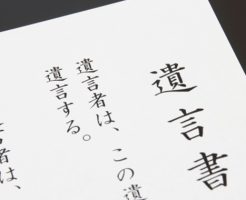 遺言書
遺言者は、この遺
遺言する。
言者は、